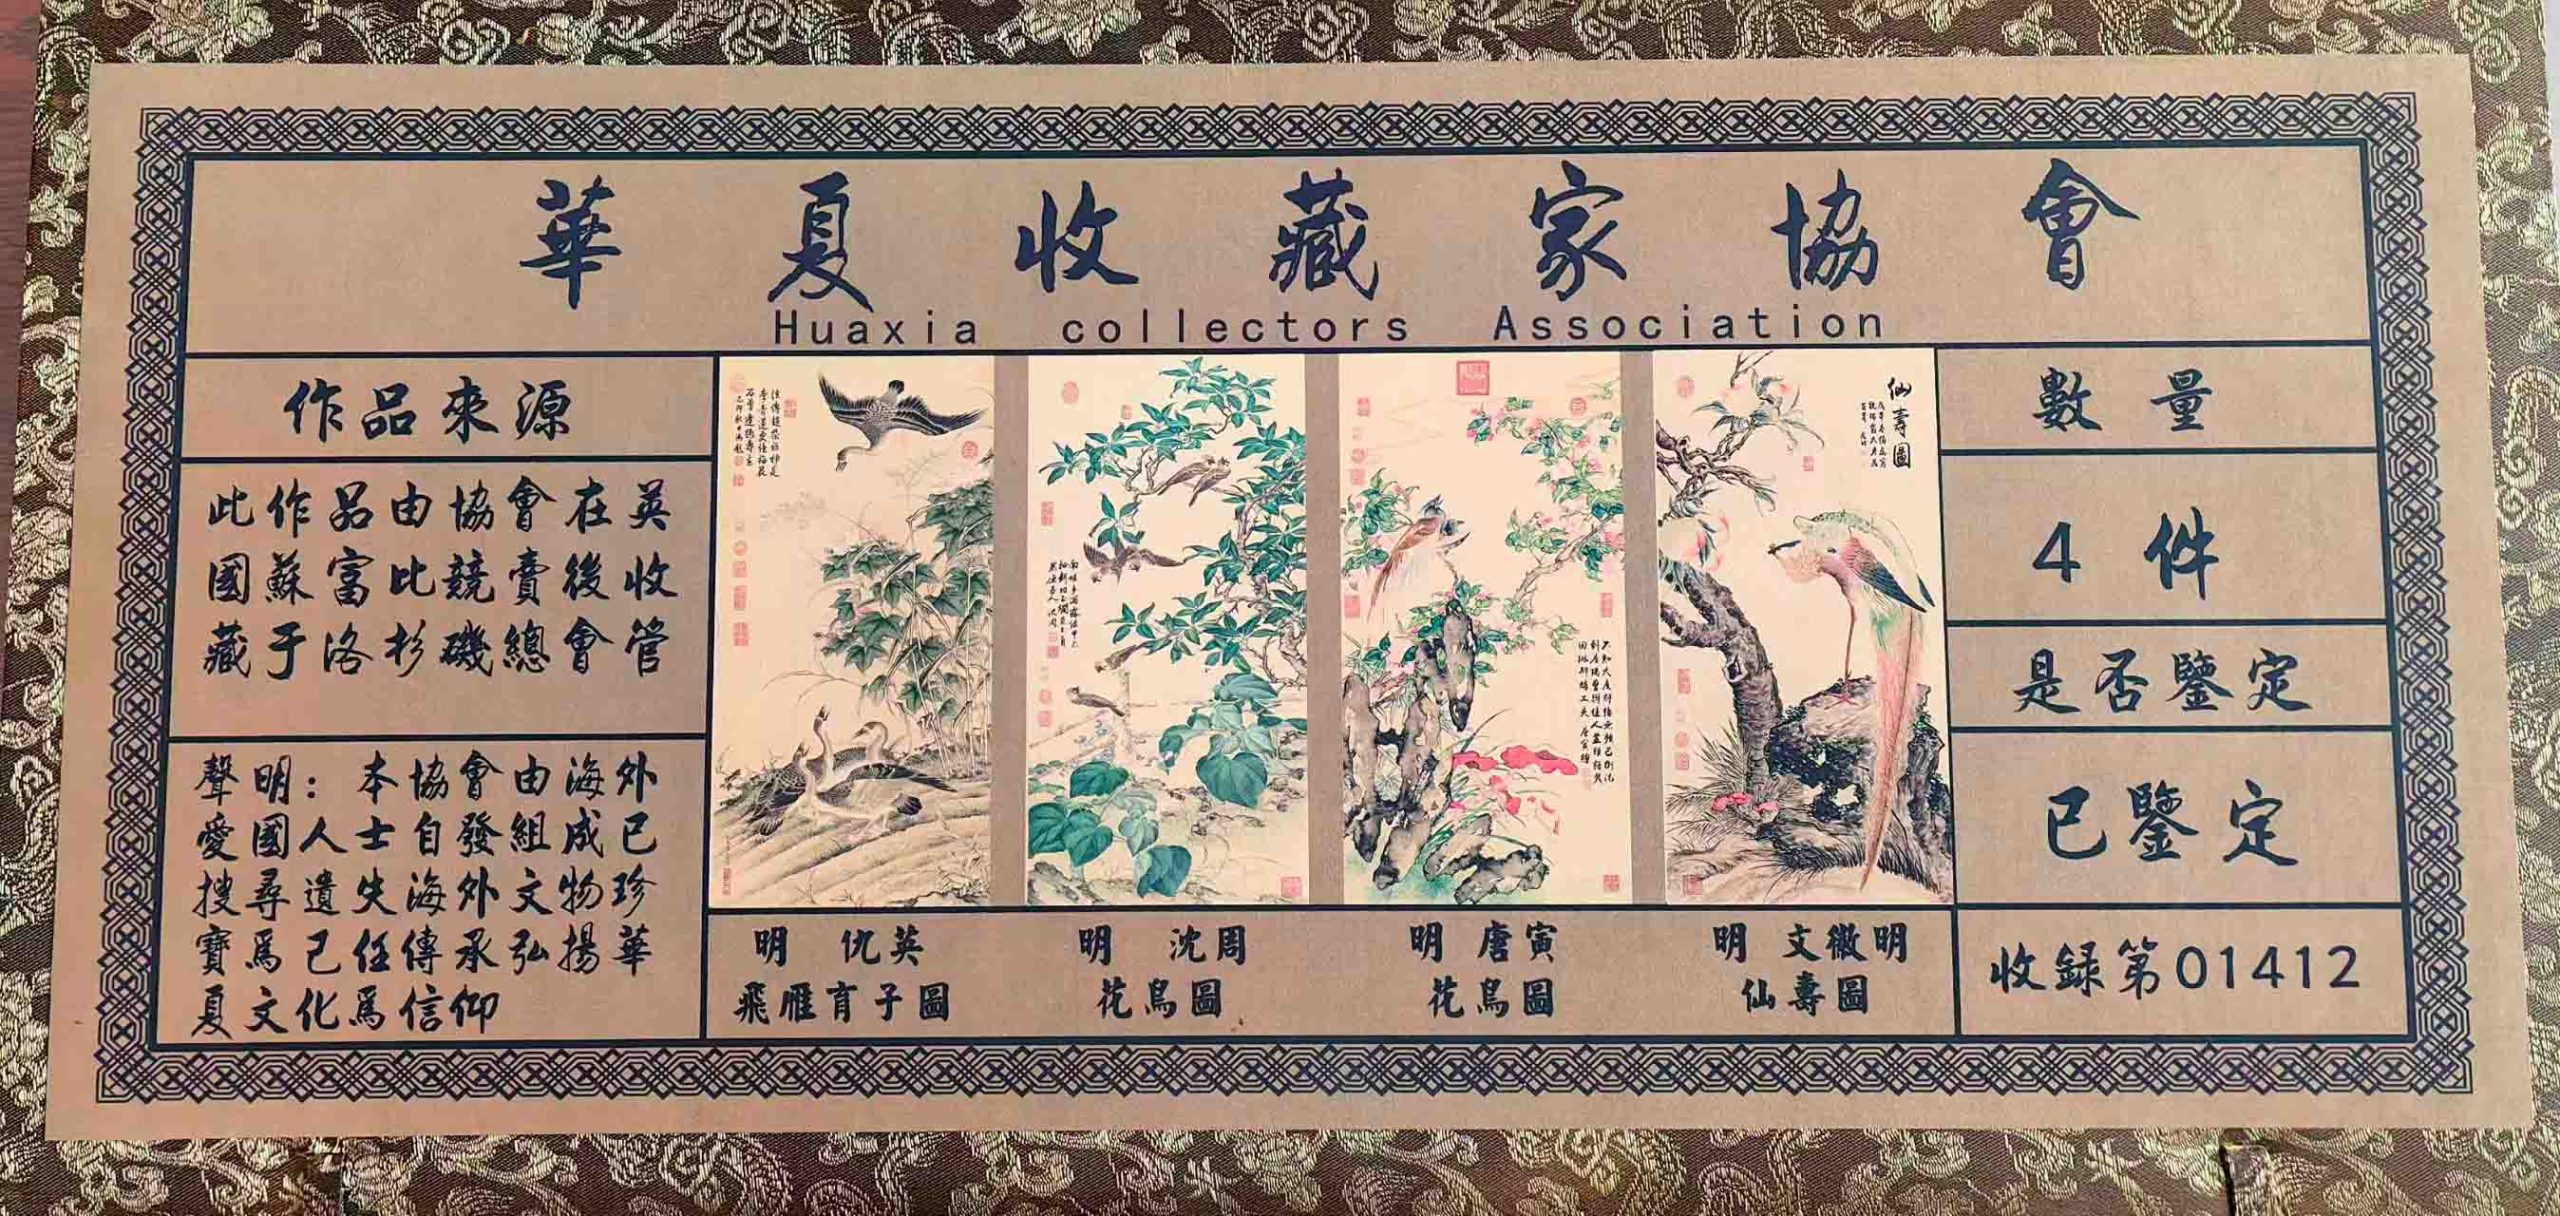 華夏收藏家協會
Huaxia collectors Association
作品來源
此作品由協會在英
國蘇富比競賣後收
藏于洛杉磯總會管
聲明：本協會由海外
愛國人士自發組成已
搜尋遺失海外文物珍
寶爲己任傳承弘揚華
夏文化爲信仰
仙壽圖
明 仇英
飛雁育子圖
明 沈周
花鳥圖
明 唐寅
花鳥圖
明 文徵明
仙壽圖
數量
4件
是否鑒定
已鑒定
收録第01412